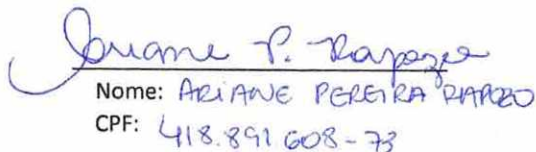 Ariane P. Rapozo
Nome: ARIANE PEREIRA RAPOZO
CPF: 418.891.608-73